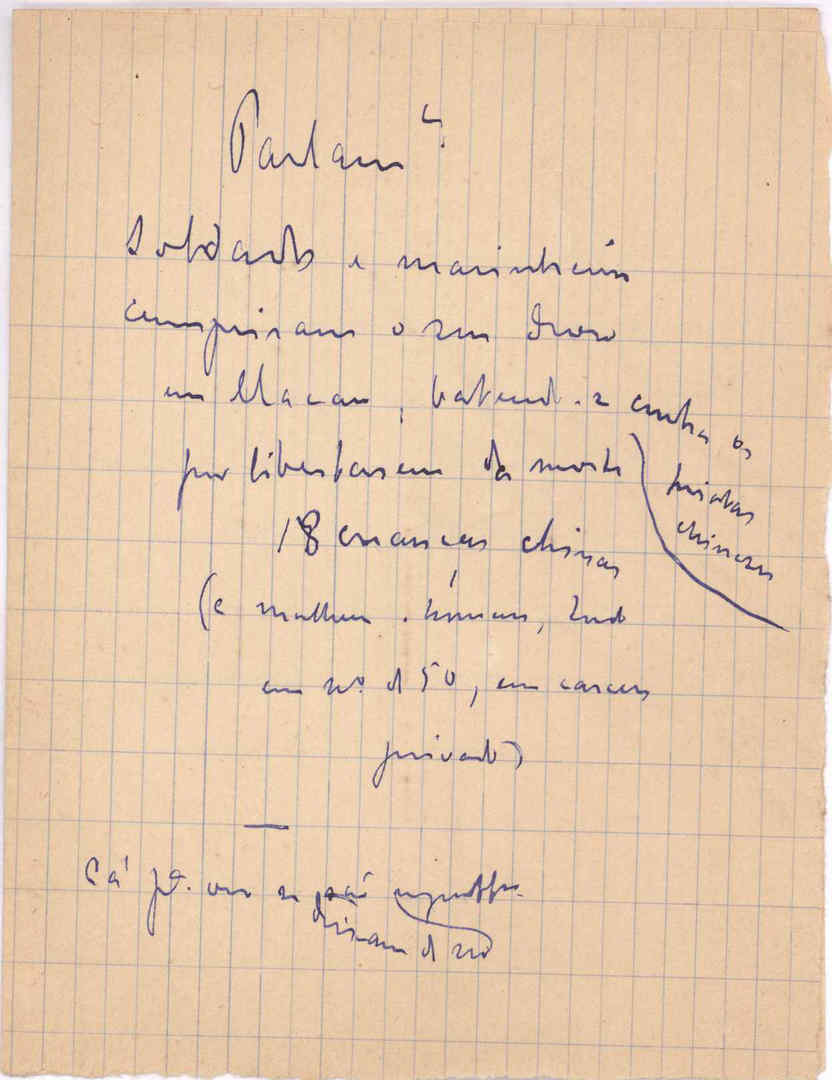 Parlam to
Soldados e marinheiros
cumpriram o seu dever
em Macau, batendo-se contra os
piratas
chinezes
por libertarem da morte
18 creanças chinas
(e mulheres e homens, tudo
em nº de 50, em carcere
privado)
—
Cá pª. ver se
de